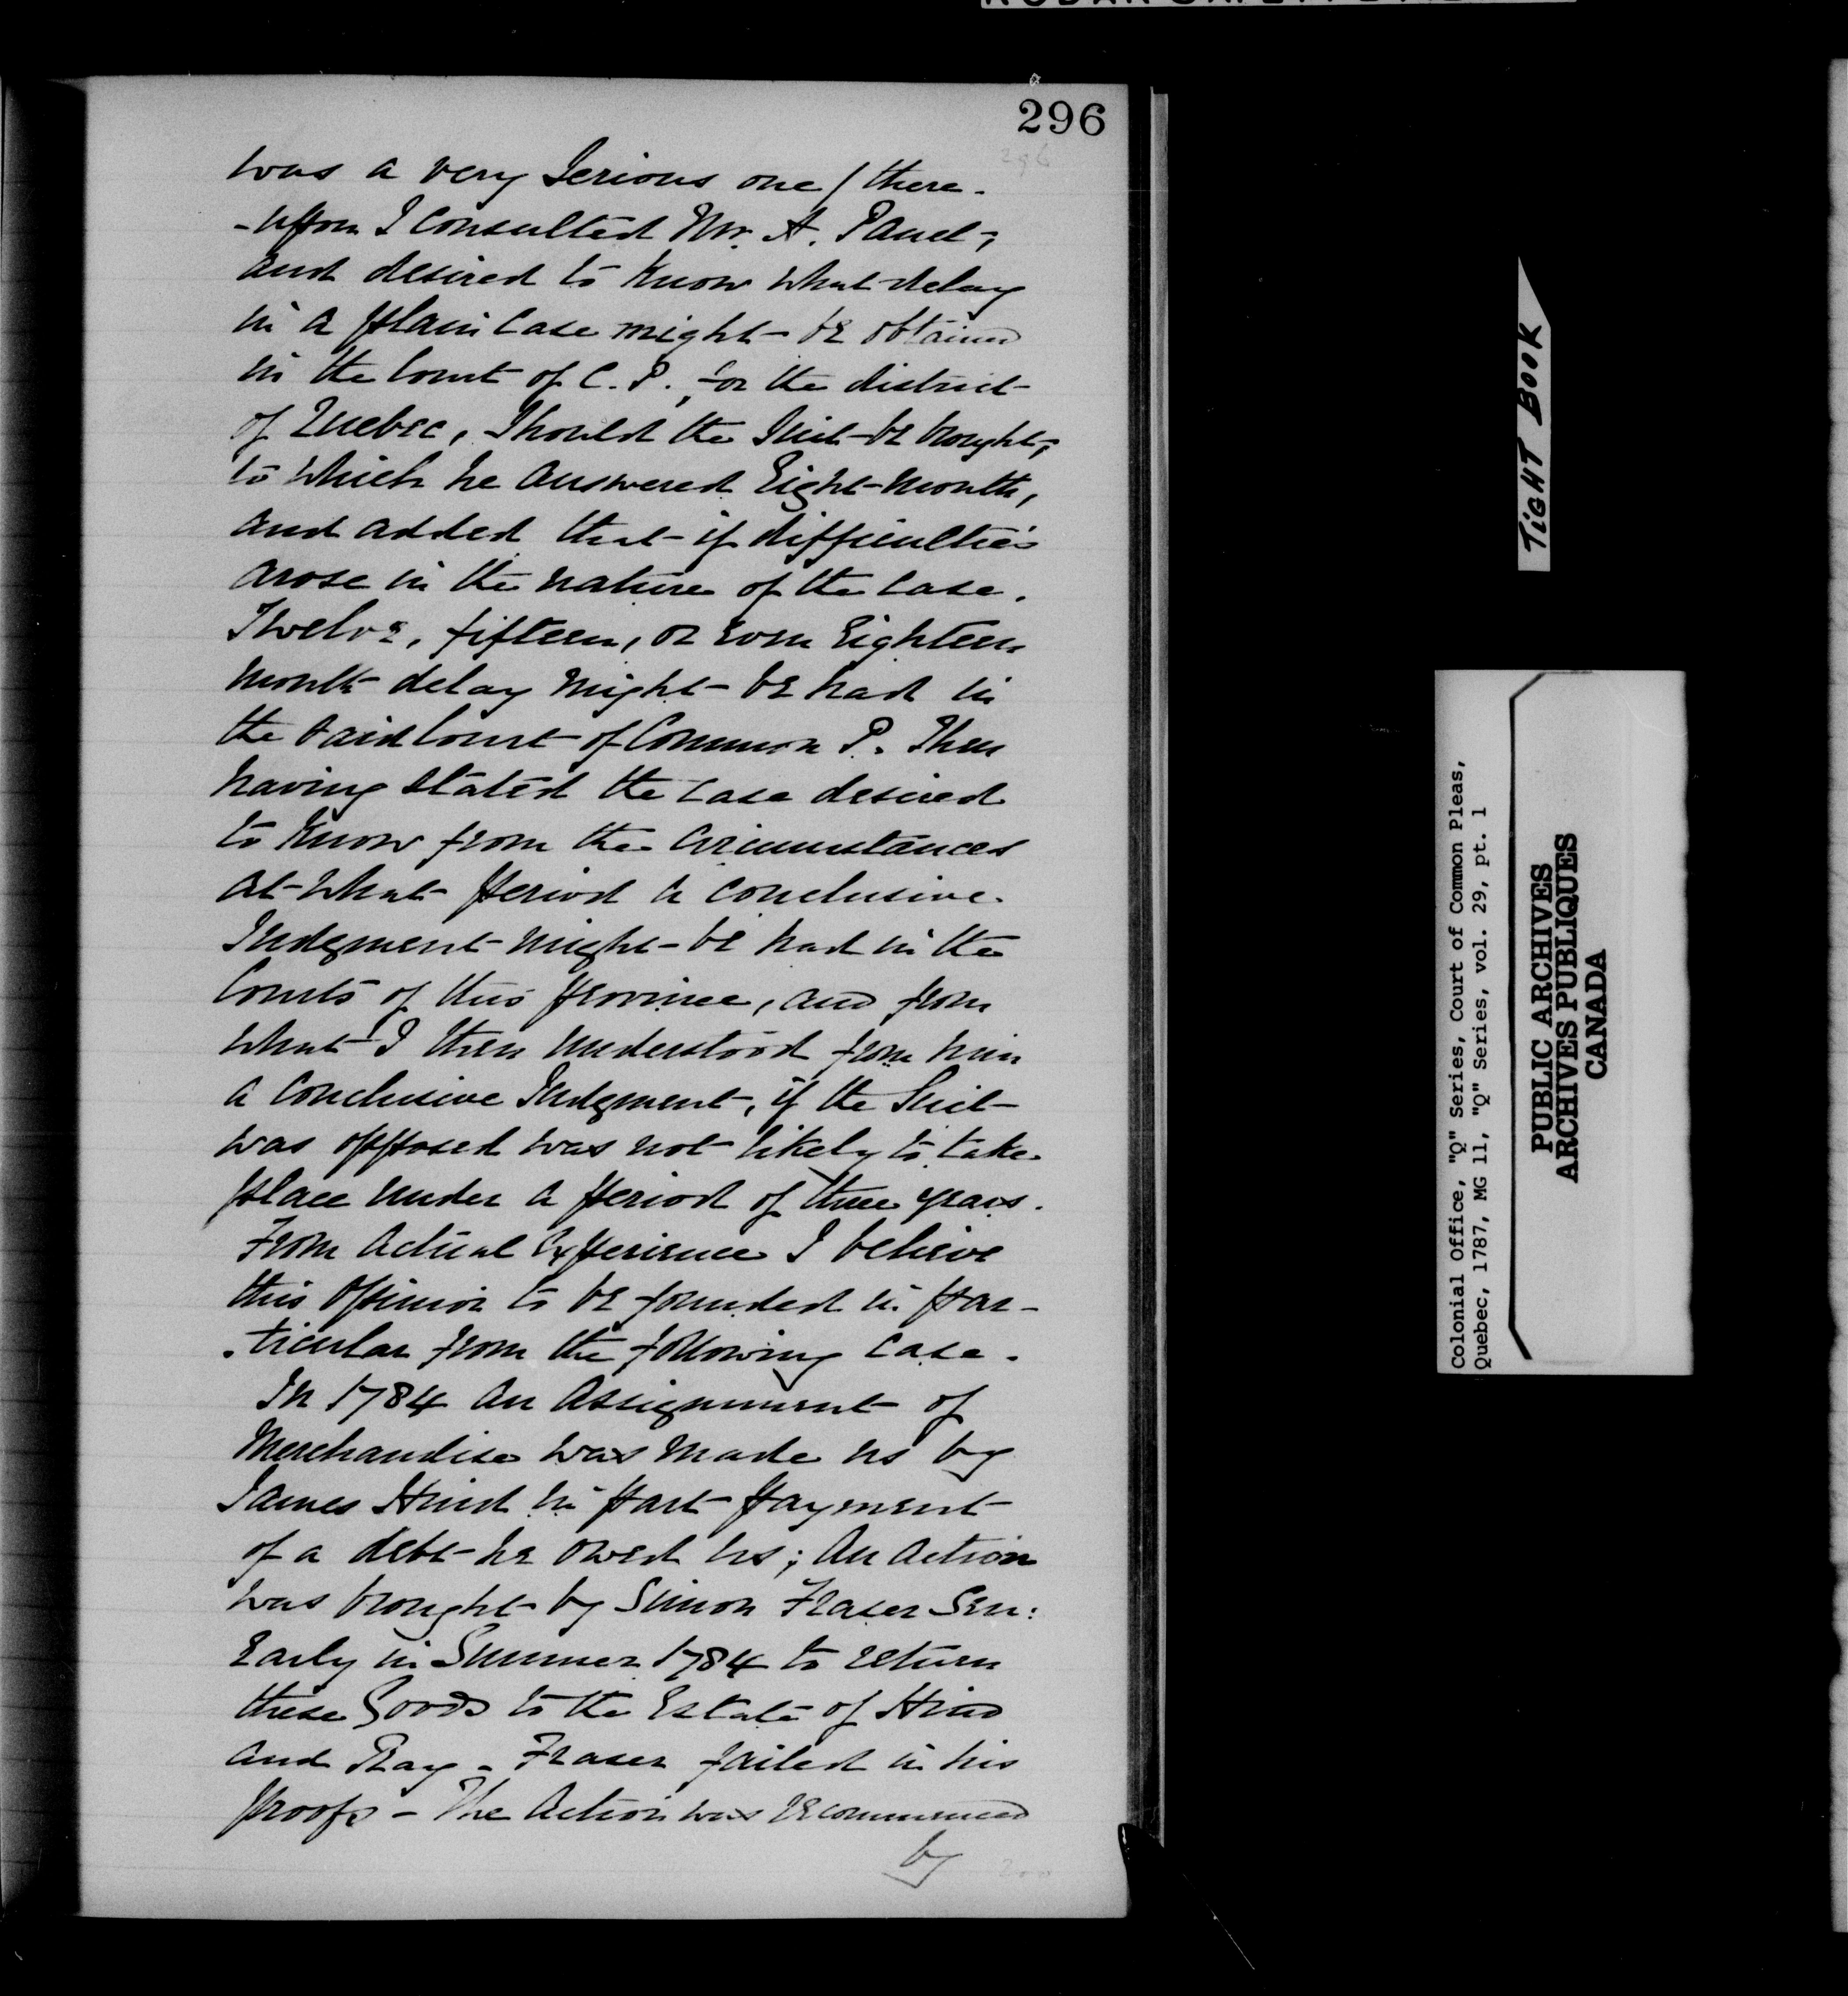 296
was a very Serious one / there-
-upon I consulted Mr. A. Panet,
and desired to know what delay
in a plain Case might be obtained
in the Court of C. P., for the district
of Quebec, Should the Suit be brought,
to which he answered Eight month,
and added that if difficulties
arose in the nature of the Case.
Twelve, fifteen, or even Eighteen
month delay might be had in
the said Court of Common P. Then
having stated the case desired
to know from the Circumstances
at what period a conclusive
Judgment might be had in the
Courts of this province, and from
what I then understood from him
a Conclusive Judgment, if the Suit
was opposed was not likely to take
place under a period of three years.
From actual Experience I believe
this Opinion to be founded in par-
-ticular from the following case.
In 1784 an Assignment of
Merchandise was made us by
James Hind in part payment
of a debt he owed us; An Action
was brought by Simon Fraser Sen:
Early in Summer 1784 to return
these Goods to the Estate of Hind
and Ray - Fraser failed in his
proofs - The Action was recommenced
by
TIGHT BOOK
Colonial Office, "Q" Series, Court of Common Pleas,
Quebec, 1787, MG 11, "Q" Series, vol. 29, pt. 1
PUBLIC ARCHIVES
ARCHIVES PUBLIQUES
CANADA